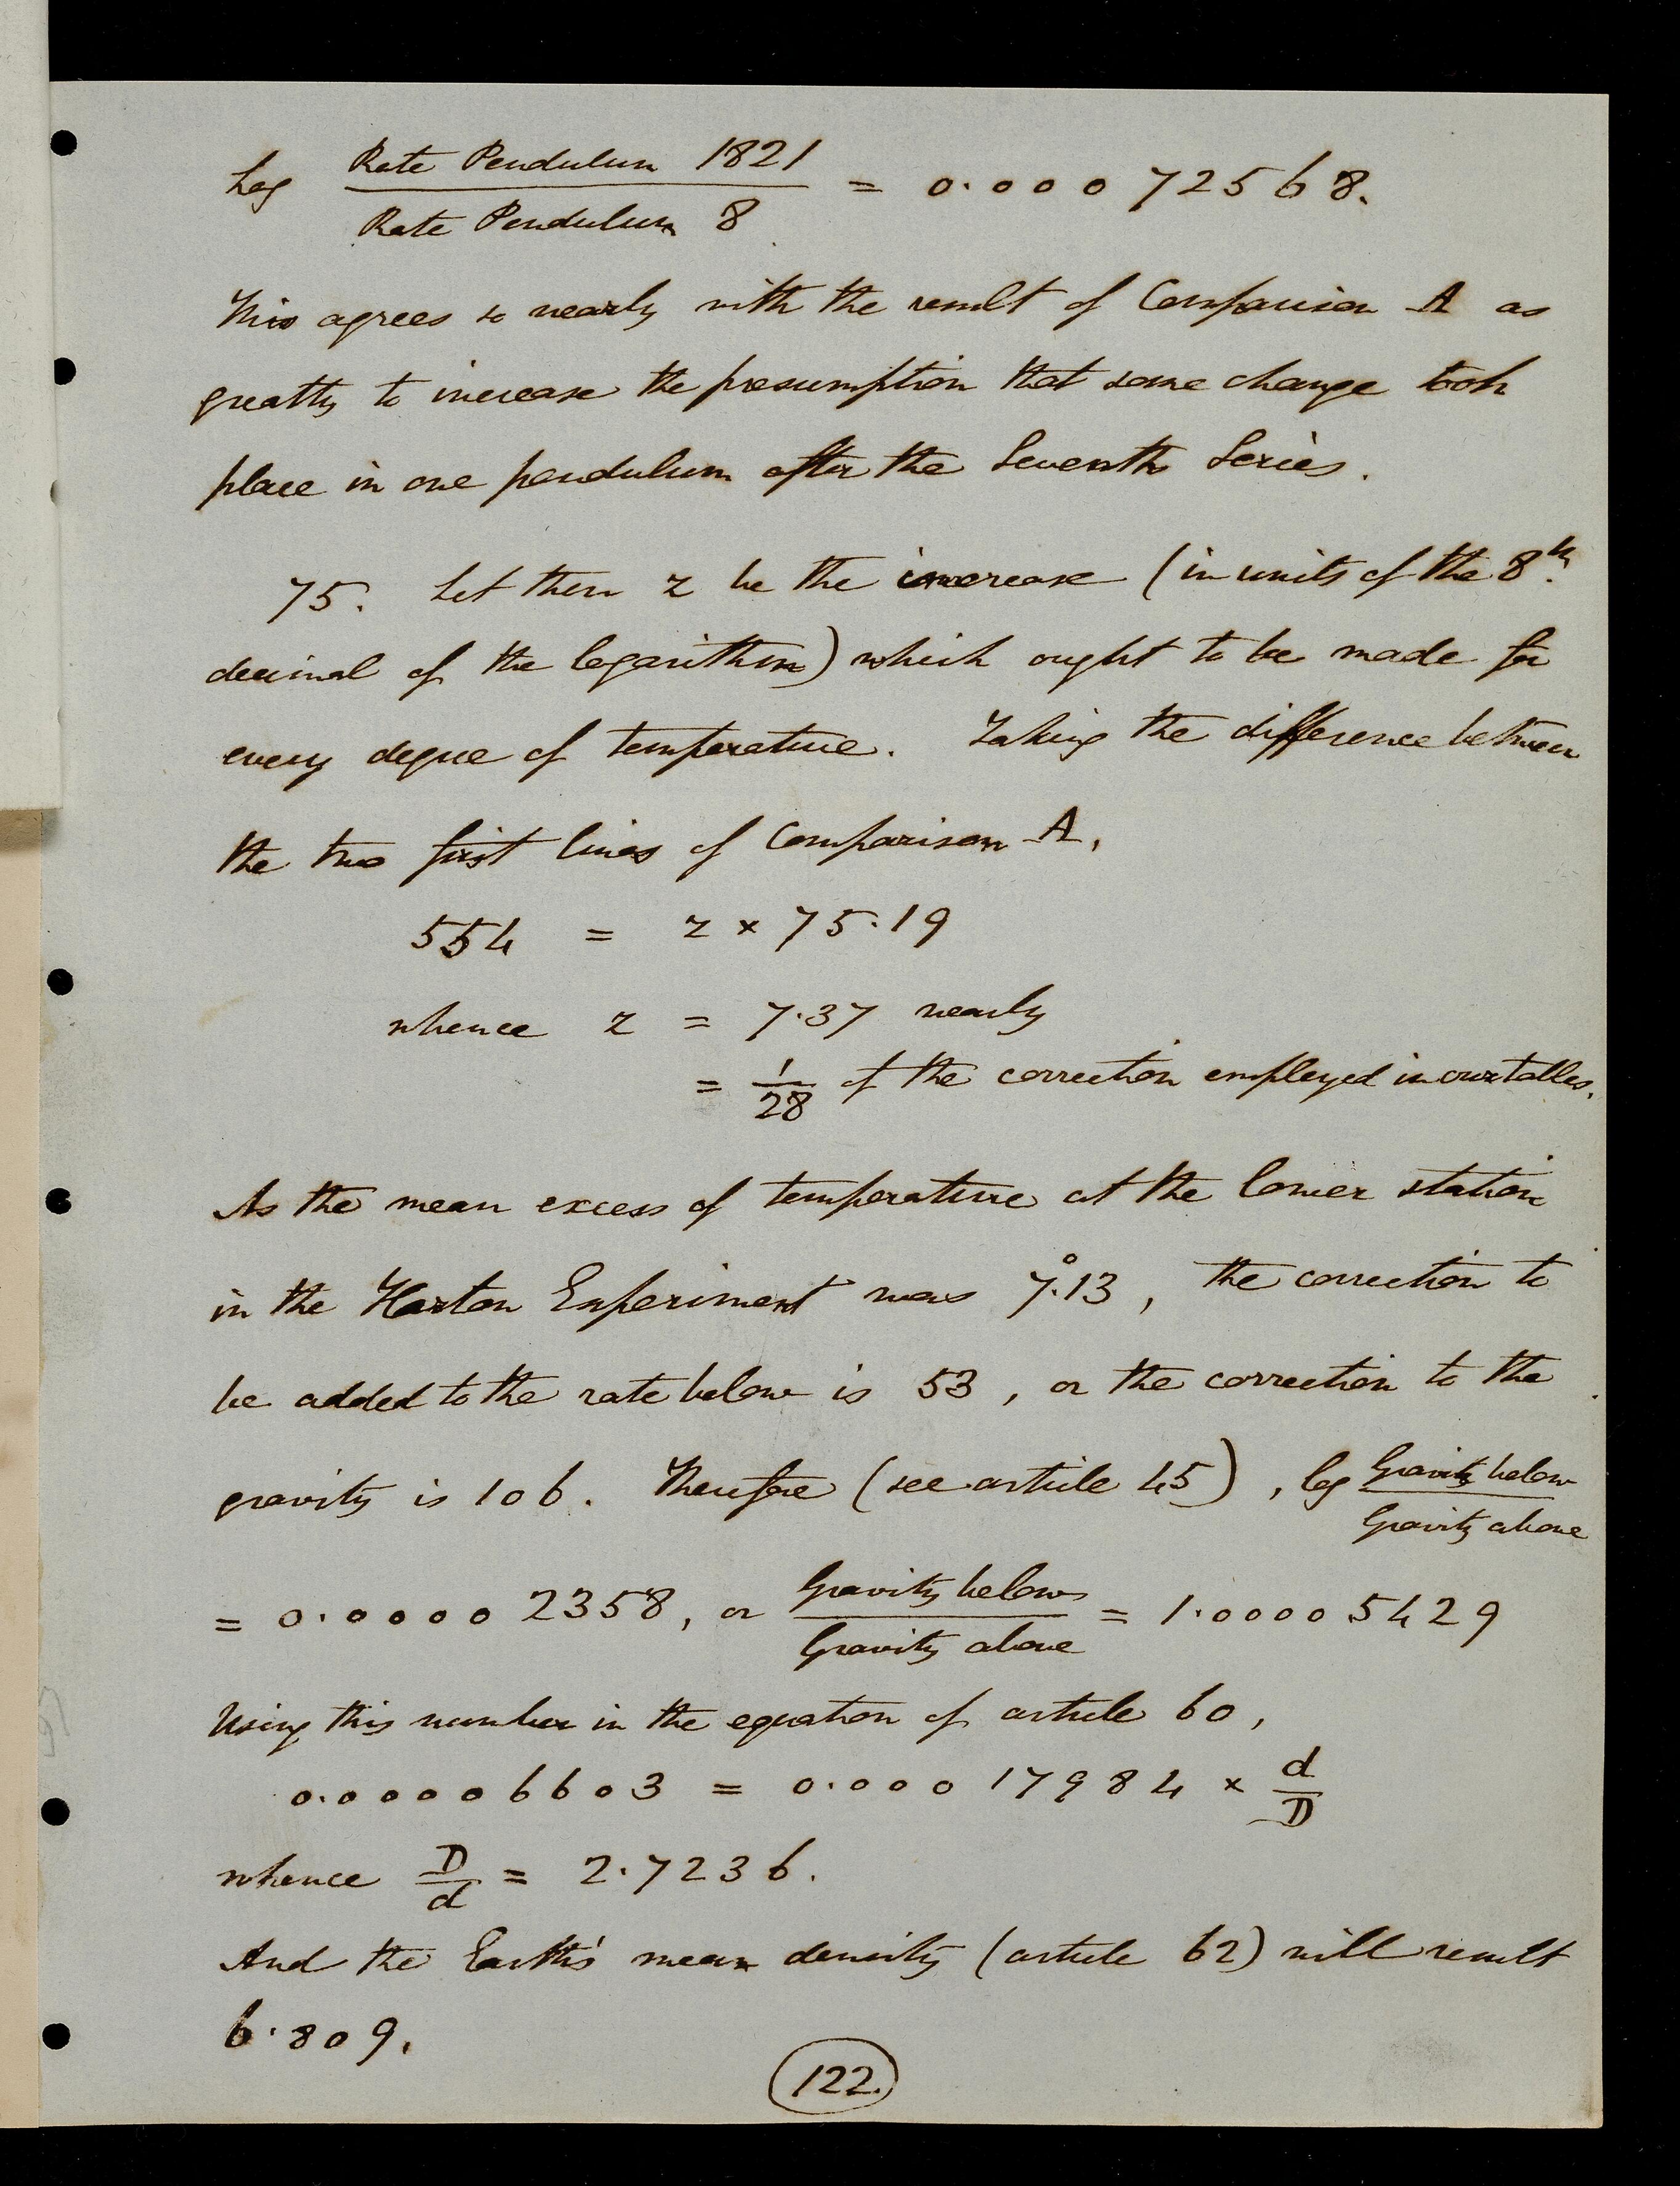 Log Rate Pendulum 1821 / Rate Pendulum 8 = 0.00072568.
This agrees so nearly with the result of Comparison A as
greatly to increase the presumption that some change took
place in one pendulum after the Seventh Series.
75. Let then z be the increase (in units of the 8th.
decimal of the logarithm) which ought to be made for
every degree of temperature. Taking the difference between
the two first lines of Comparison A,
554 = z × 75.19
whence z = 7.37 nearly
= 1/28 of the correction employed in our tables.
As the mean excess of temperature at the lower station
in the Harton Experiment was 7°.13, the correction to
be added to the rate below is 53, or the correction to the
gravity is 106. Therefore (see article 45), log Gravity below / Gravity above
= 0.00002358, or Gravity below / Gravity above = 1.00005429
Using this number in the equation of article 60,
0.00006603 = 0.00017984 × d/D
whence D/d = 2.7236.
And the Earth's mean density (article 62) will result
6.809.
122.